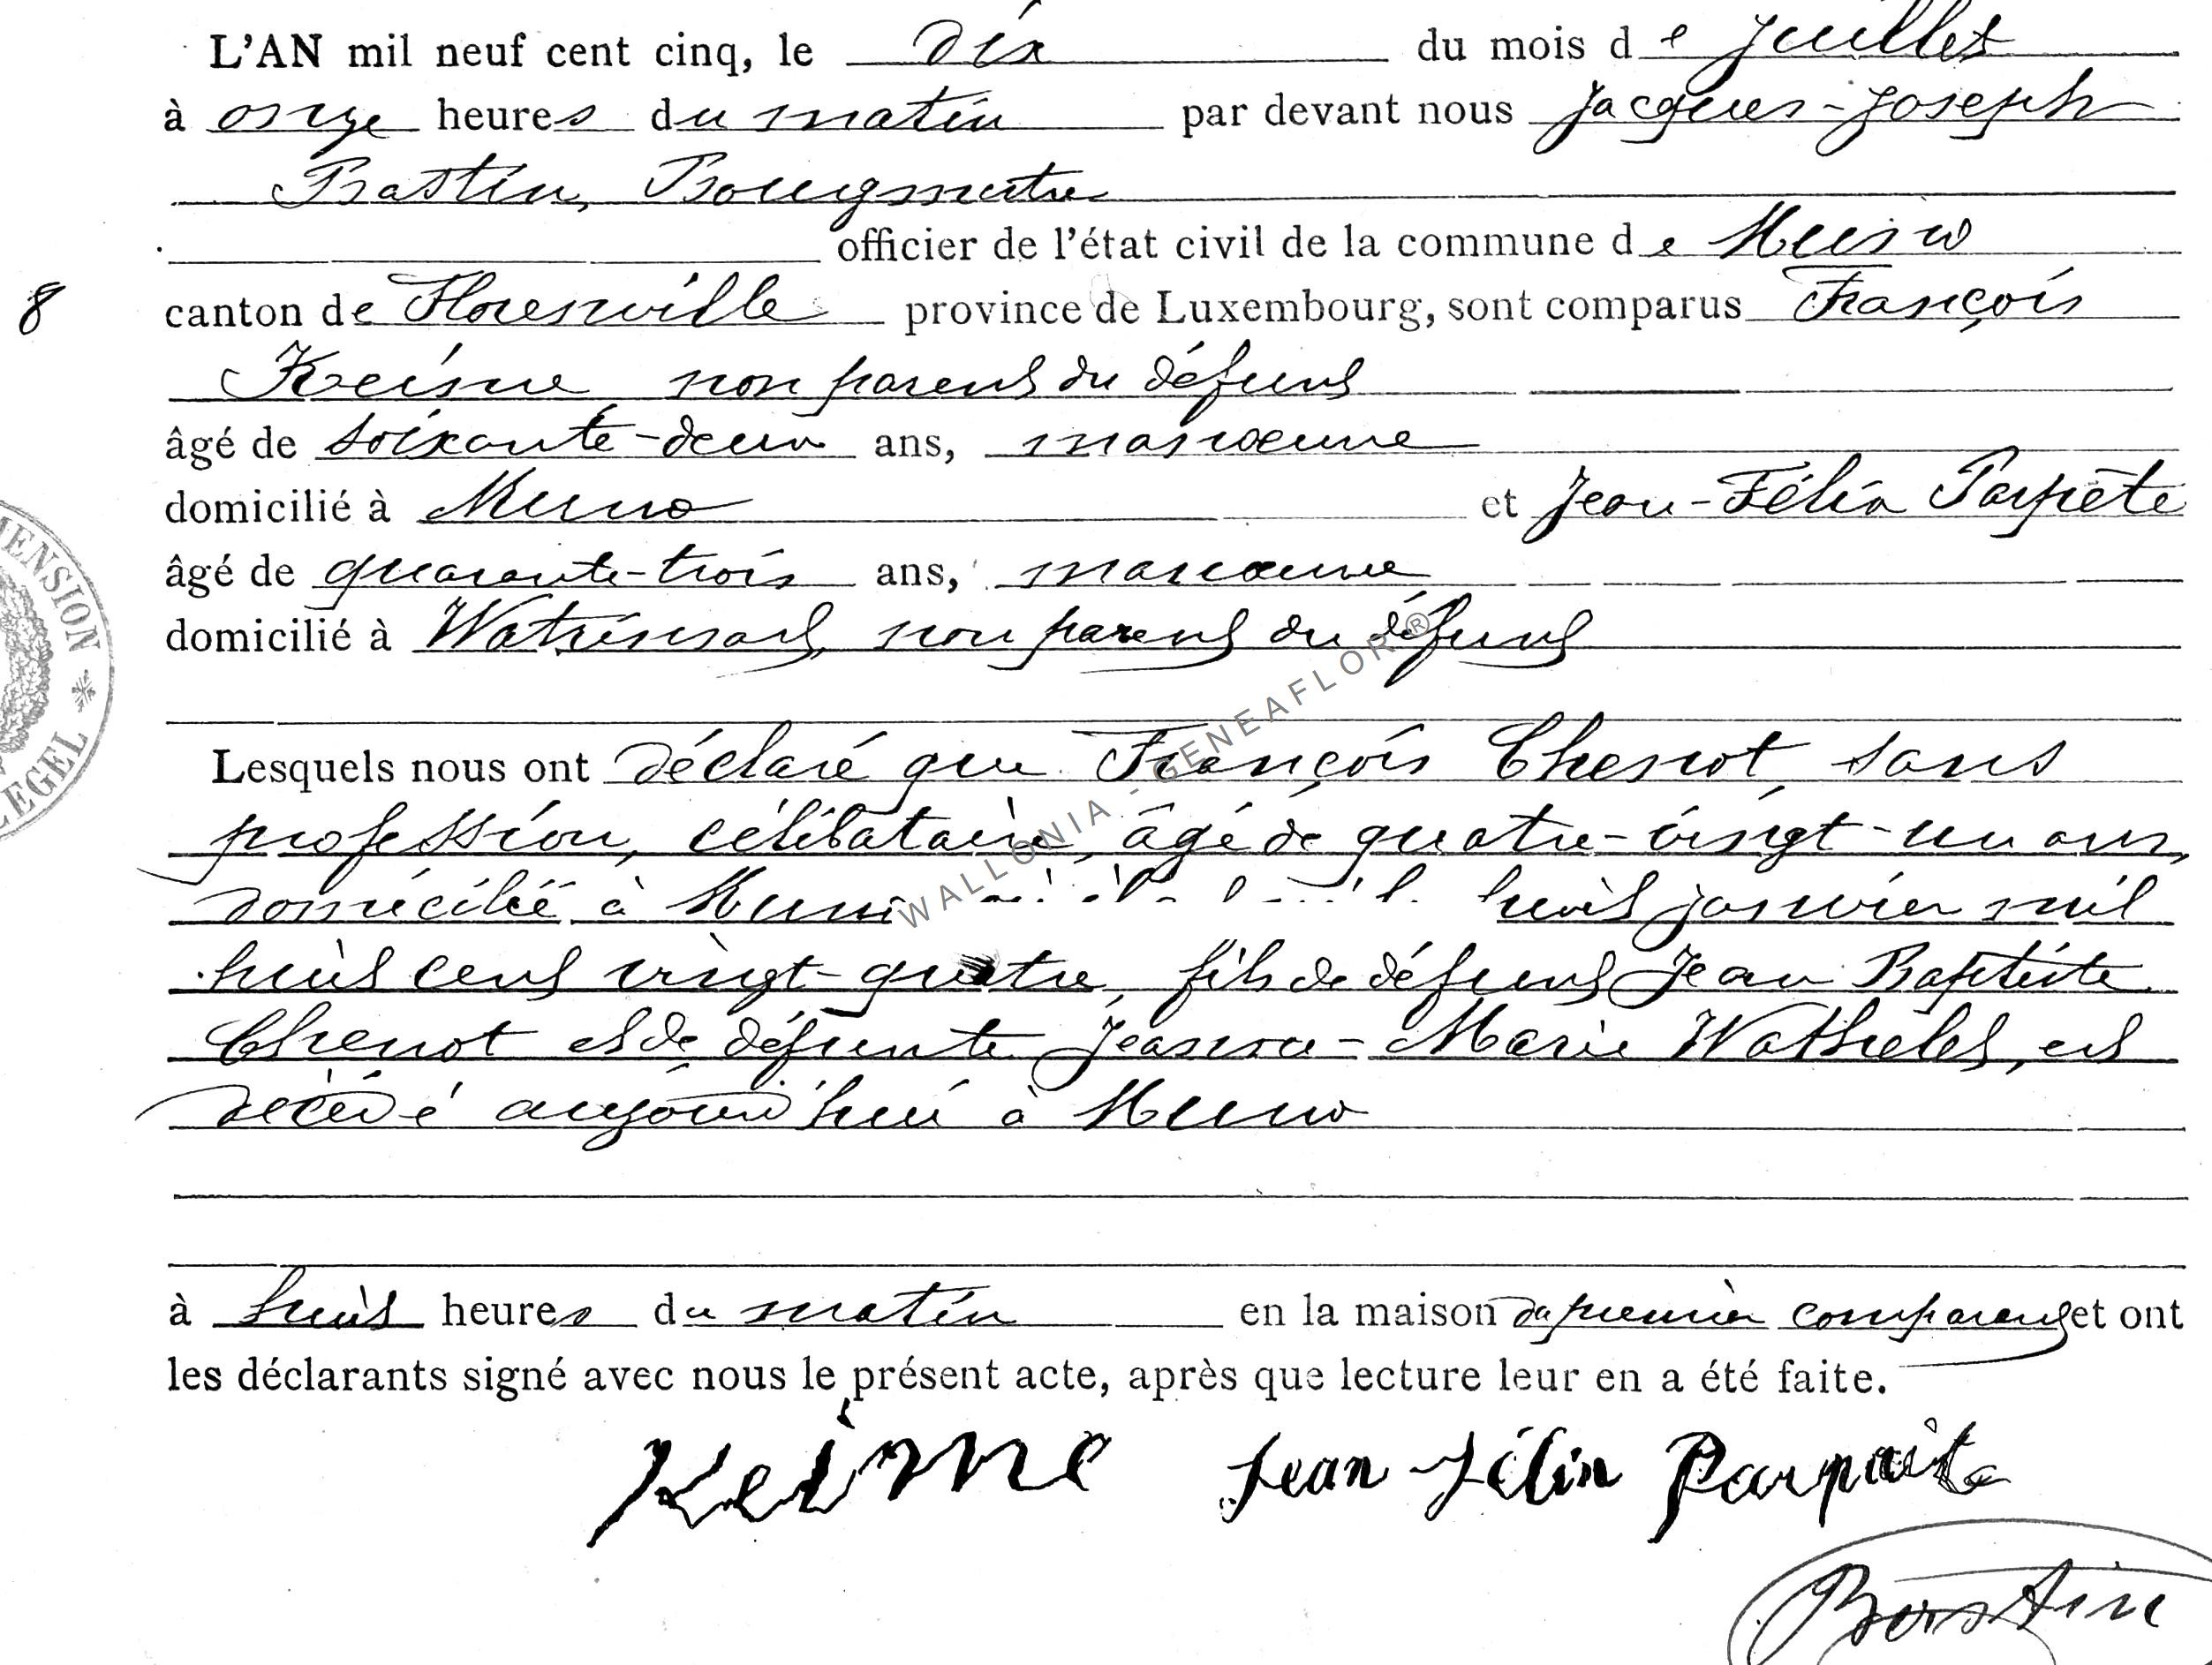 L'AN mil neuf cent cinq, le dix du mois de Juillet
à onze heures du matin par devant nous Jacques-Joseph
Bastin, Bourgmestre
officier de l'état civil de la commune de Muno
8 canton de Florenville province de Luxembourg, sont comparus François
Keisne non parent du défunt
âgé de soixante-deux ans, manœuvre
domicilié à Muno et Jean-Félix Parpète
âgé de quarante-trois ans, manœuvre
domicilié à Watrinsart, non parent du défunt
Lesquels nous ont déclaré que François Chenot, sans
profession, célibataire, âgé de quatre-vingt-un ans,
domicilié à Muno huit janvier mil
huit cent vingt-quatre, fils de défunt Jean Baptiste
Chenot et de défunte Jeanne-Marie Wathelet, est
décédé aujourd'hui à Muno
à huit heures du matin en la maison du premier comparant et ont
les déclarants signé avec nous le présent acte, après que lecture leur en a été faite.
Keisne Jean Félix Parpaite
Bastin
MENSION * EGEL
WALLONIA - GENEAFLOR ®